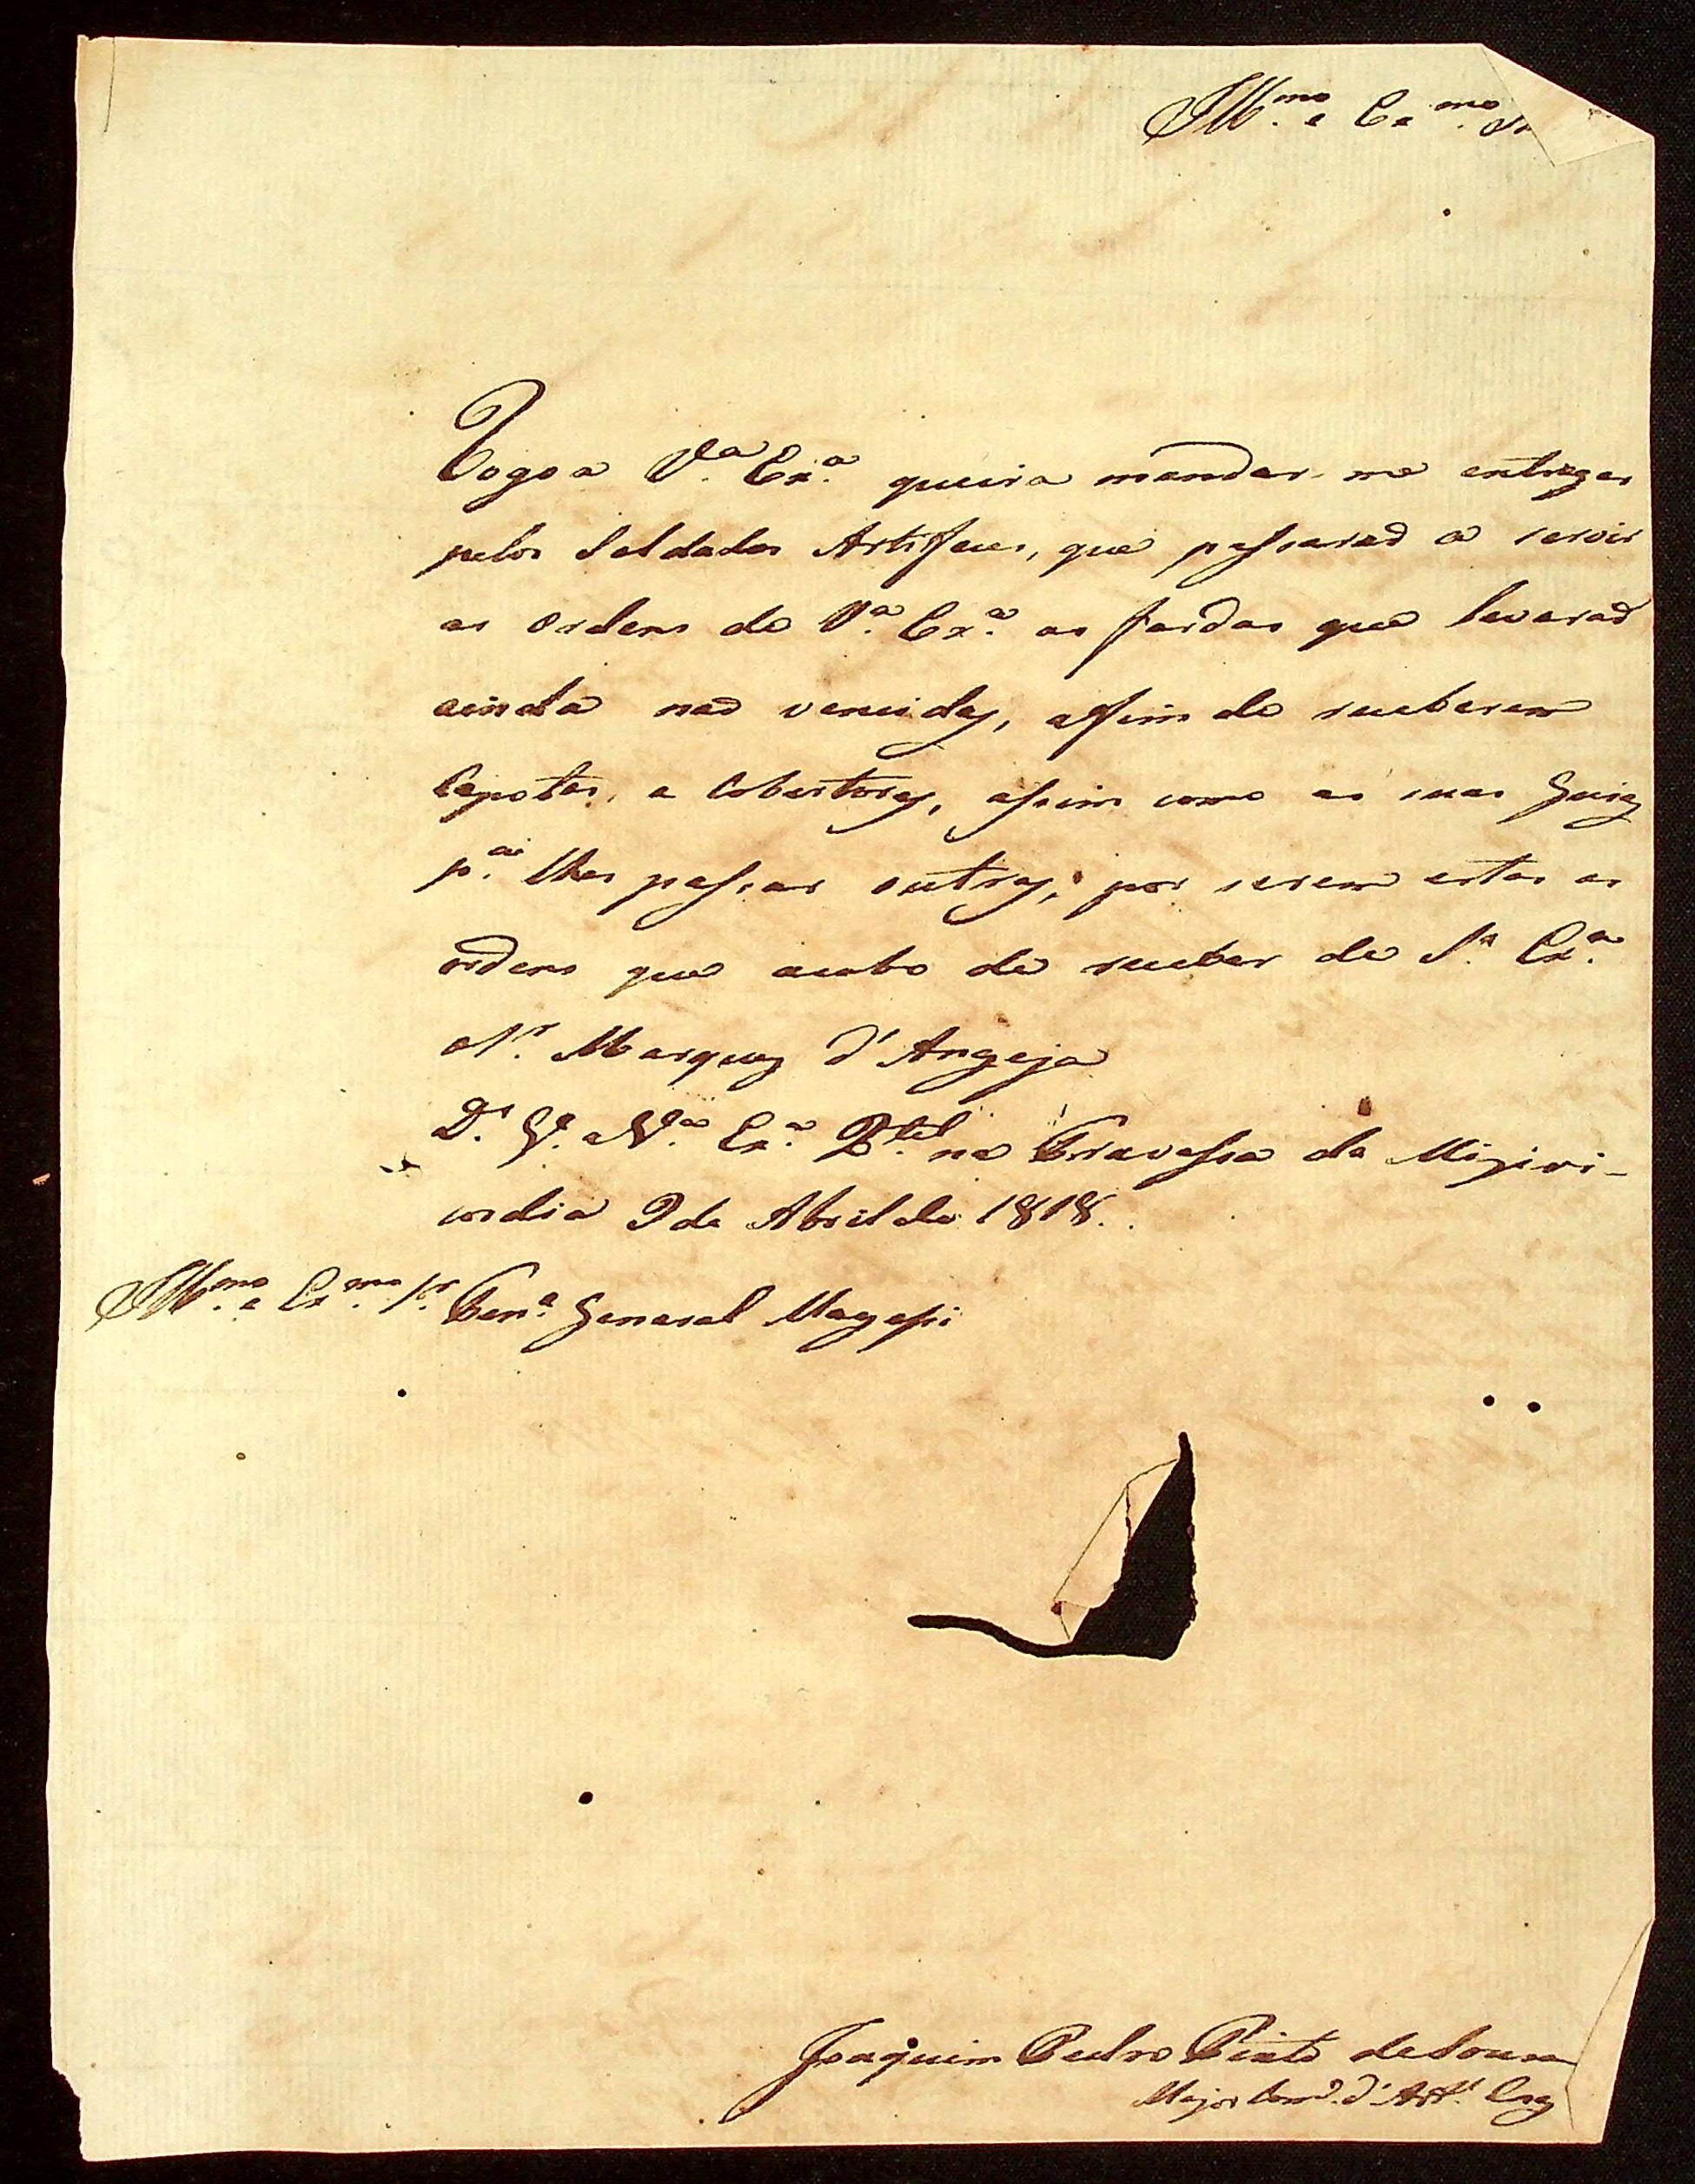 Ill.mo e Ex.mo Sr
Rogo a V.a Ex.a queira mandar-me entregar
pelos Soldados Artifices, que passaraõ a servir
as Ordens de V.a Ex.a as fardas que levaraõ
ainda naõ vencidas, affim de receberem
Capotes, e Cobertores, assim como as suas Guias
p.a lhes passar outras; por serem estas as
ordens que acabo de receber de S.a Ex.a
o S.r Marquez d'Angeja
D.s G.e a V.a Ex.a Q.tel na Travessa da Mizeri-
cordia 9 de Abril de 1818.
Ill.mo e Ex.mo Sr. Ten.e General Magessi
Joaquim Pedro Pinto de Souza
Major Com.e d'Art.